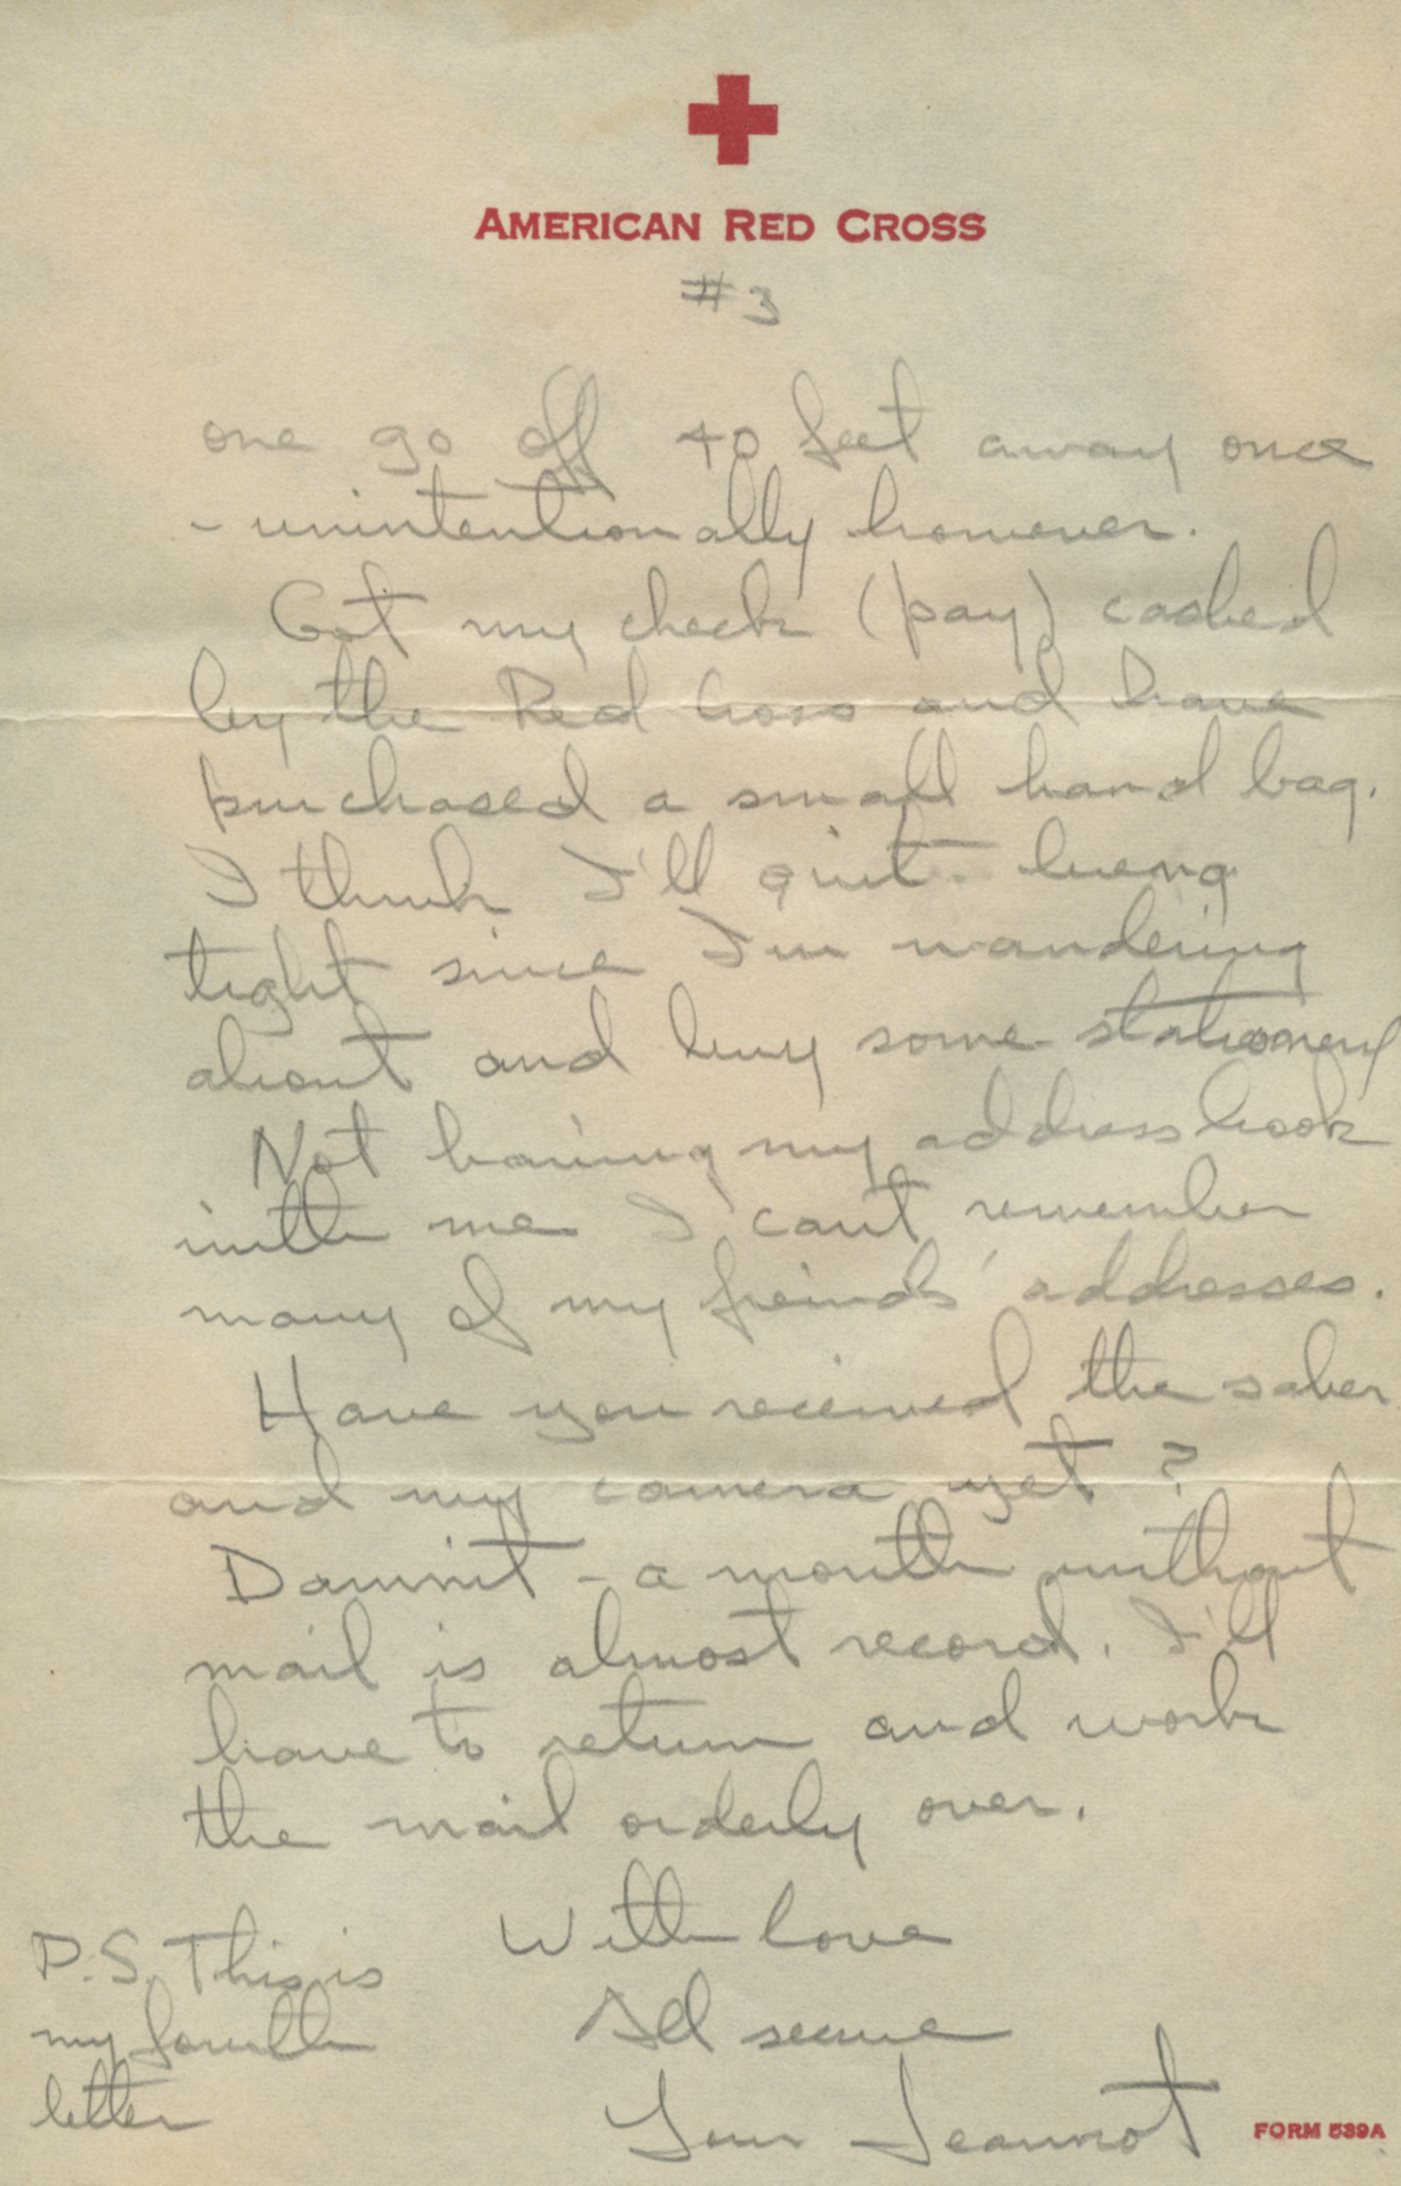 AMERICAN RED CROSS
#3
one go off 40 feet away once
- unintentionally however.
Got my check (pay) cashed
by the Red Cross and have
purchased a small hand bag.
I think I'll quit being
tight since I'm wandering
about and buy some stationery
Not having my address book
with me I can't remember
many of my freinds' addresses.
Have you received the saber
and my camera yet?
Dammit - a month without
mail is almost record. I'll
have to return and work
the mail orderly over.
With love
All secure
Your Jeannot
P.S. This is
my fourth
letter
FORM 539A